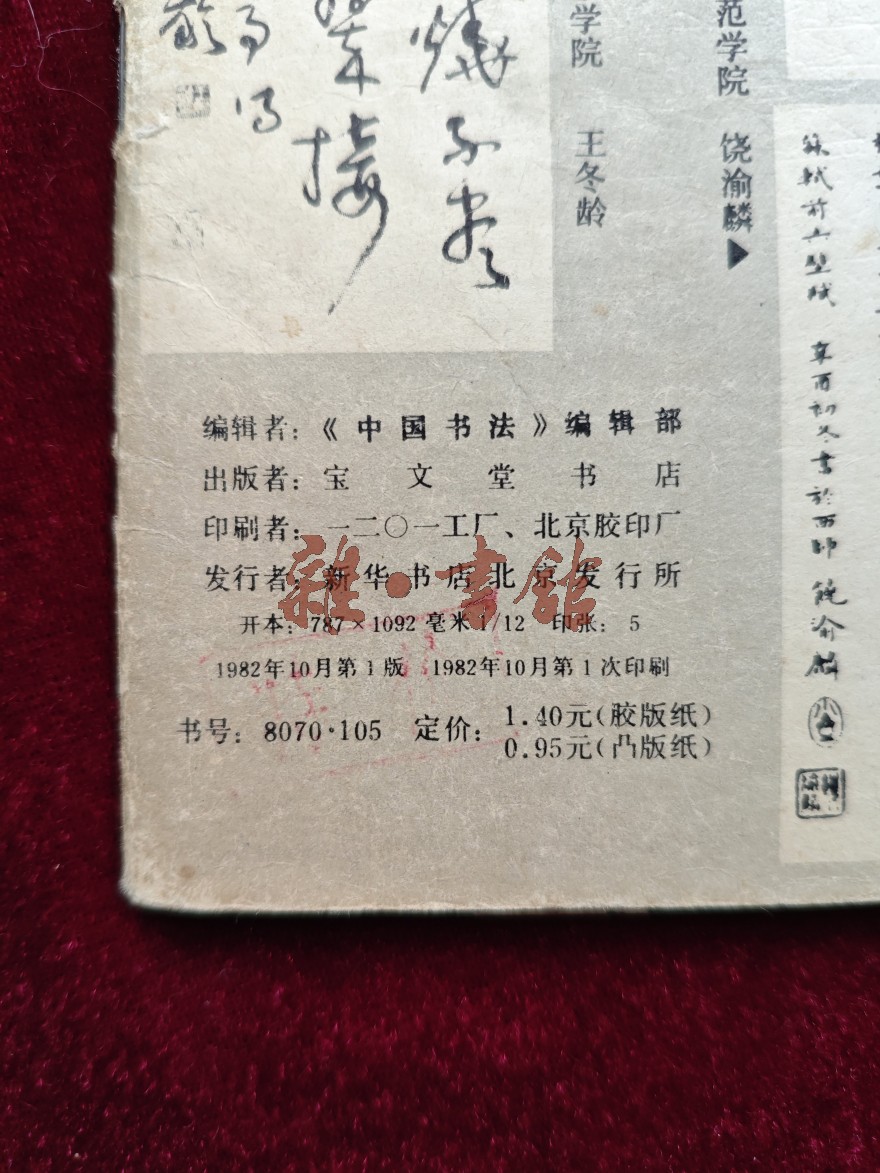 学院 王冬龄
范学院 饶渝麟▶
接
前六壁赋 辛酉初冬书於西师 饶渝麟
编辑者：《中国书法》编辑部
出版者：宝文堂书店
印刷者：一二〇一工厂、北京胶印厂
发行者：新华书店北京发行所
开本：787×1092毫米1/12 印张：5
1982年10月第1版 1982年10月第1次印刷
书号：8070·105 定价：1.40元（胶版纸）
0.95元（凸版纸）
雜·書館